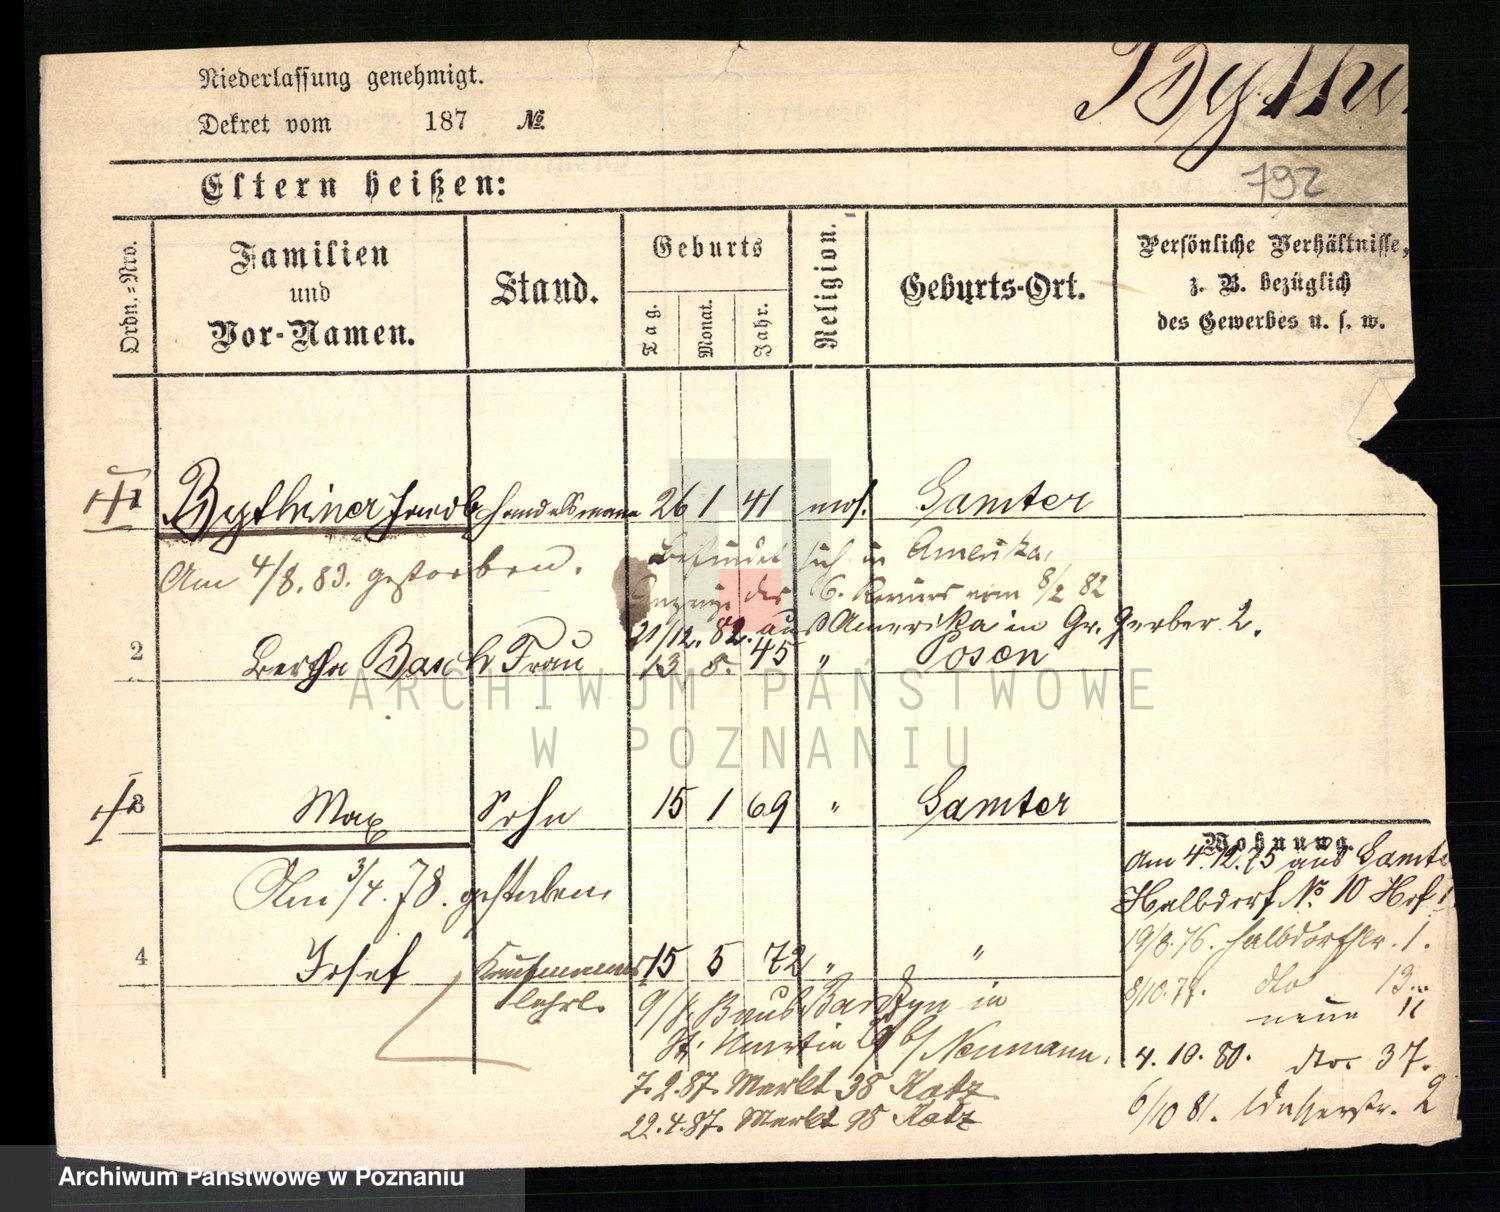 Niederlassung genehmigt.
Dekret vom 187 №
Bythi
792
Eltern heißen:
Ordn.-Nro.
Familien
und
Vor-Namen.
Stand.
Geburts
Tag.
Monat.
Jahr.
Religion.
Geburts-Ort.
Persönliche Verhältnisse,
z. B. bezüglich
des Gewerbes u. s. w.
1 Bythiner Jacob Handelsmann 26 1 41 mos. Samter
Am 4/8. 83. gestorben.
Befindet sich in Amerika,
des 6. Reviers vom 8/2 82
21/12. 82. aus Amerika in Gr. Gerber 2.
2 Bertha Basch Frau 13 5. 45 " Posen
3 Max Sohn 15 1 69 " Samter
Am 3/4. 78. gestorben.
4 Josef Kaufmanns 15 5 72 " "
lehrl.
in
St. Martin b/ Neumann.
7. 2. 87. Markt 38 Katz
22. 4. 87. Markt 98 Katz
Wohnung.
Am 4. 12. 75 aus Samte
Halbdorf № 10 Hof
19/8. 76. Halbdorfstr. 1.
8/10. 77. dto 13
neue 11
4. 10. 80. dto 37.
6/10 81. 2
ARCHIWUM PAŃSTWOWE
W POZNANIU
Archiwum Państwowe w Poznaniu